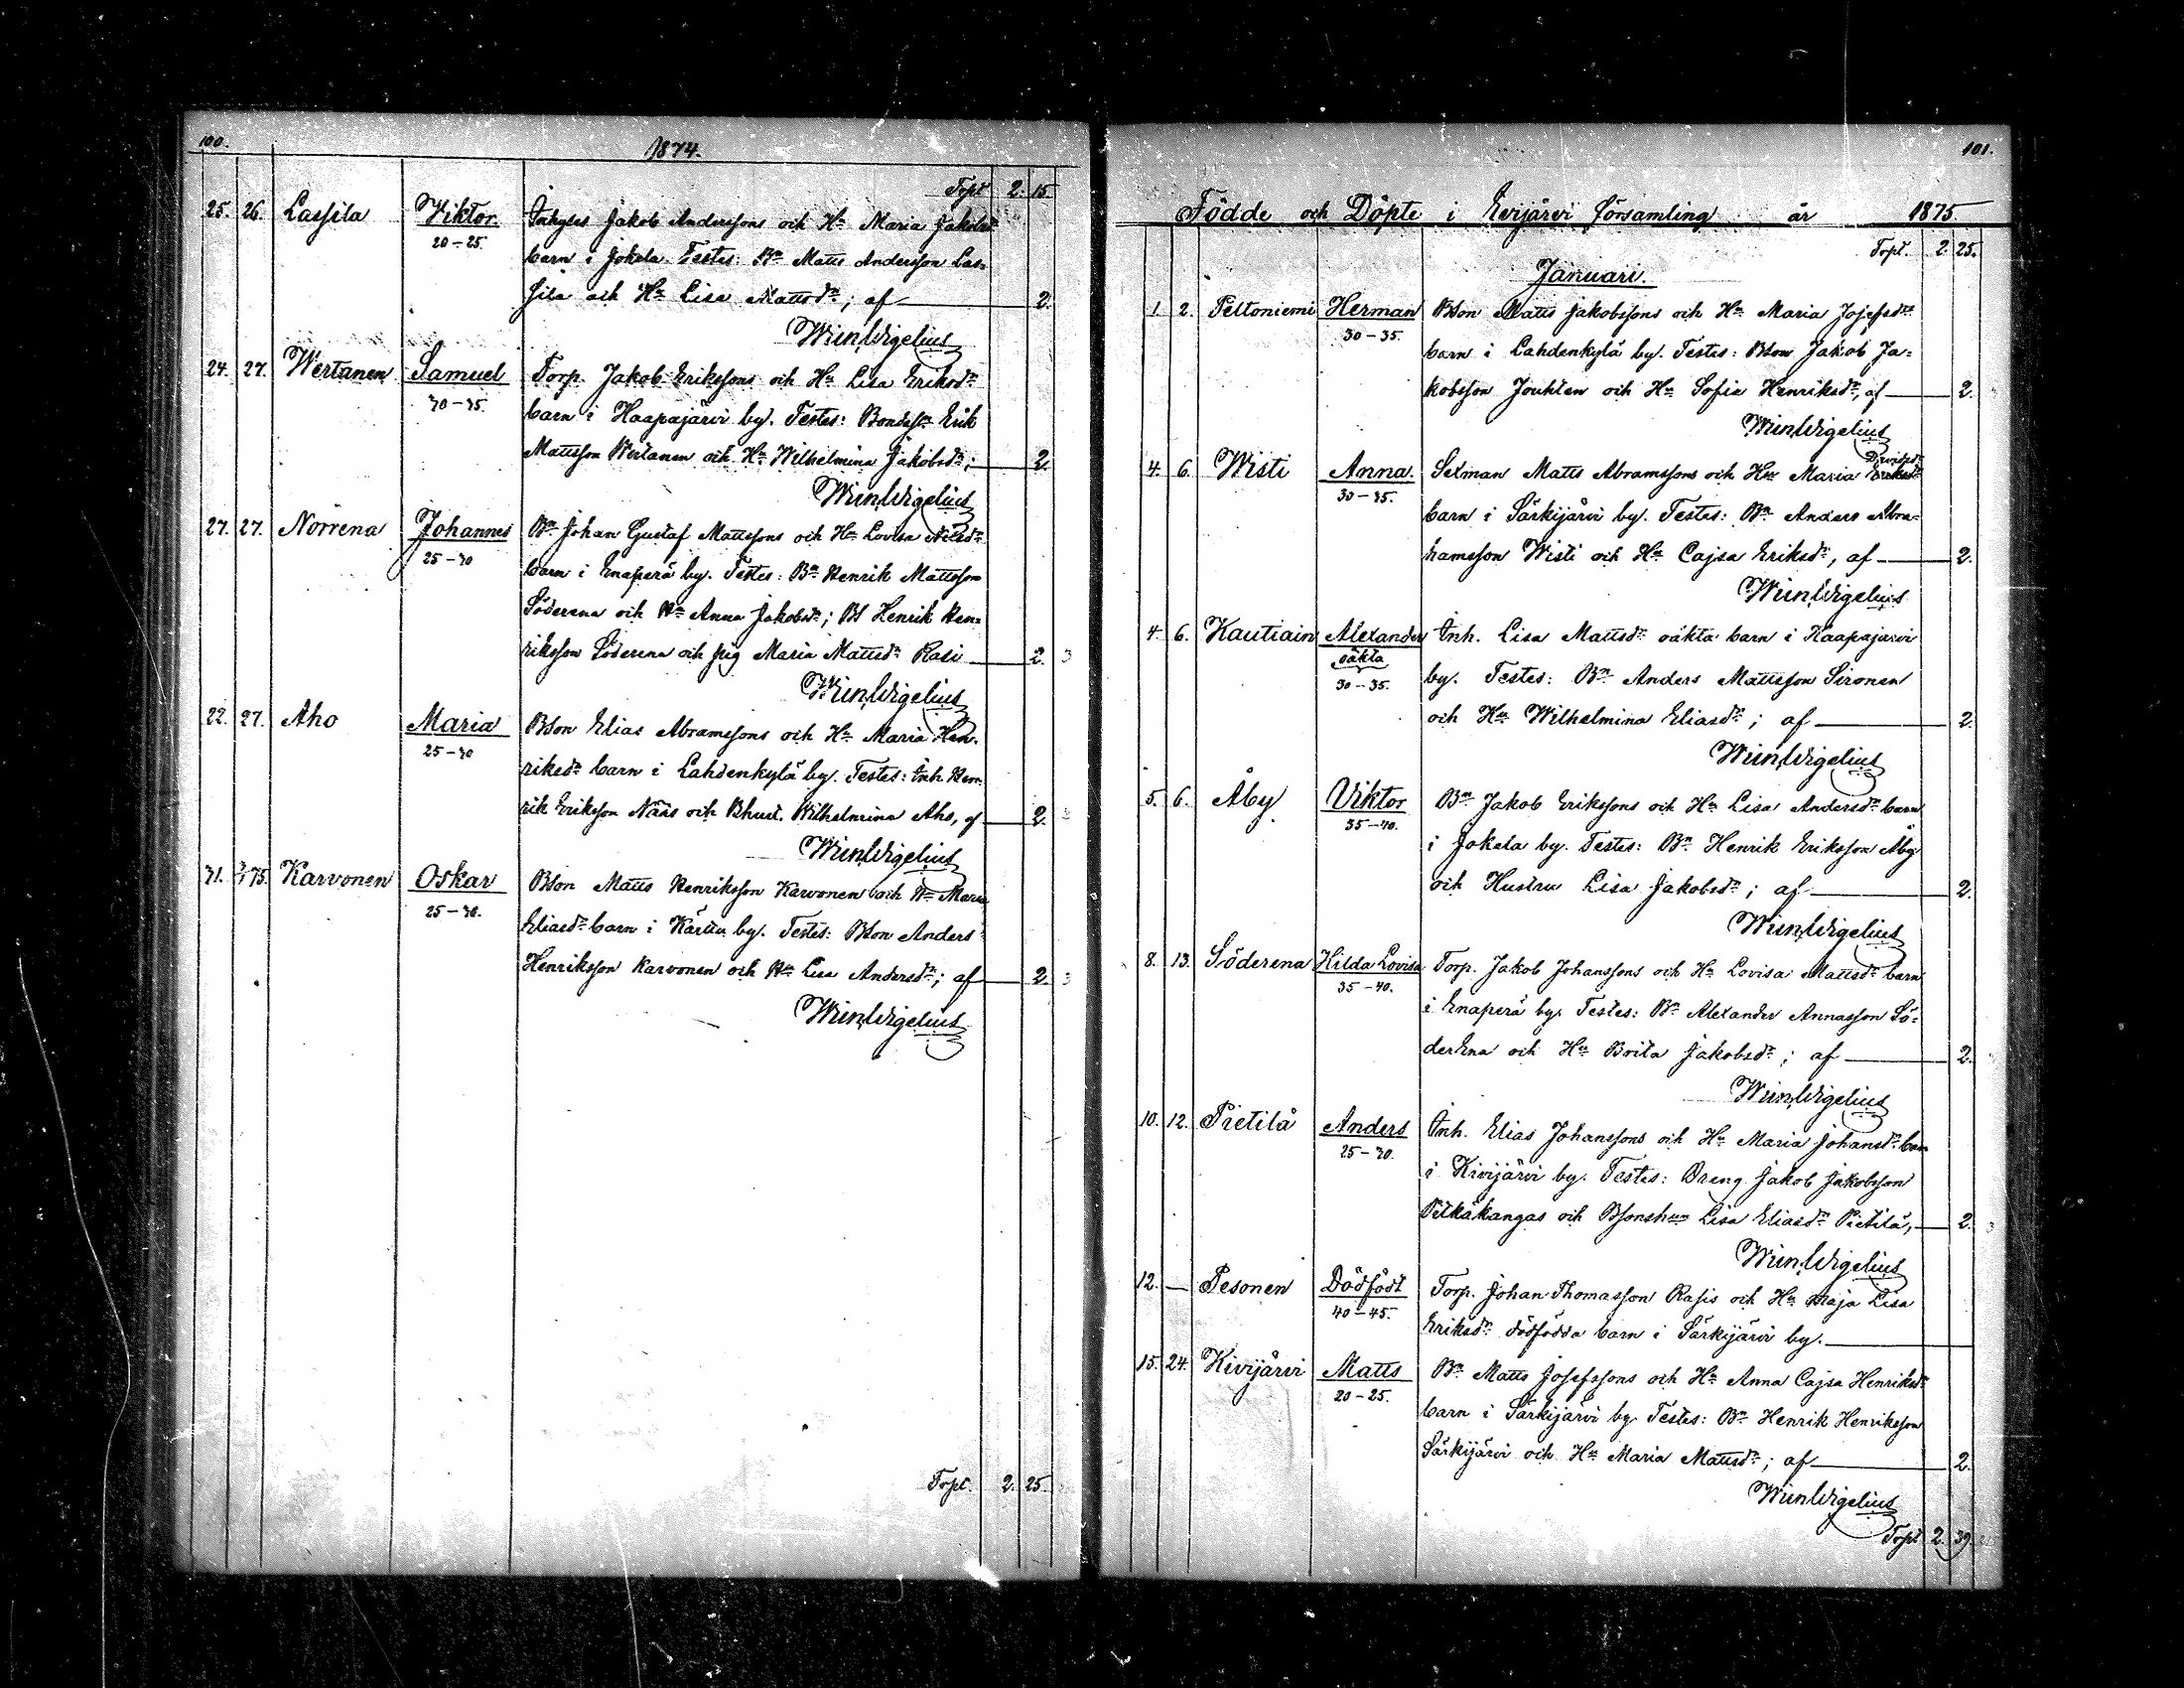 100.
1874.
Topt 2. 15
25. 26. Lassila Viktor. Inhyses Jakob Anderssons och Hu Maria Jakobsd:r
20-25.
barn i Jokela. Testes: Bn Matts Andersson Las-
sila och Hu Lisa Mattsdr; af 2.
Wigelius
24. 27. Wertanen Samuel Torp. Jakob Erikssons och Hu Lisa Eriksdr
30-35.
barn i Haapajärvi by. Testes: Bondes. Erik
Mattsson Wertanen och Hu Wilhelmina Jakobsdr; 2
Wigelius
27. 27. Norrena Johannes Bn Johan Gustaf Mattssons och Hu Lovisa Nilsdr
25-30
barn i Enaperä by. Testes: Bn Henrik Mattsson
Söderena och Hu Anna Jakobsdr; BS Henrik Hen-
riksson Söderena och pig Maria Mattsdr Rasi 2. 3
Wigelius
22. 27. Aho Maria BSon Elias Abramssons och Hu Maria Hen-
25-30
riksdr barn i Lahdenkylä by. Testes: Inh. Hen-
rik Eriksson Nääs och Bhust. Wilhelmina Aho, af 2. 3
Wigelius
31. 3/1 75. Karvonen Oskar BSon Matts Henriksson Karvonen och Hu Maria
25-30.
Eliasdr barn i Kärttu by. Testes: BSon Anders
Henriksson Karvonen och Hu Lisa Andersdr; af 2. 3
Wigelius
Topt. 2. 25.
101.
Födde och Döpte i Evijärvi församling år 1875
Topt. 2. 25.
Januari.
1. 2. Peltoniemi Herman BSon Matts Jakobssons och Hu Maria Josefsdr
30-35.
barn i Lahdenkylä by. Testes: BSon Jakob Ja-
kobsson Jouhten och Hu Sofia Henriksdr, af 2.
Wigelius
Davidsdr
4. 6. Wisti Anna. Sexman Matts Abramssons och Hu Maria Eriksdr
30-35.
barn i Särkijärvi by. Testes: Bn Anders Abra-
hamsson Wisti och Hu Cajsa Eriksdr, af 2.
Wigelius
4. 6. Kautiain Alexander Inh. Lisa Mattsdr oäkta barn i Haapajärvi
oäkta
30-35.
by. Testes: Bn Anders Mattsson Sironen
och Hu Wilhelmina Eliasdr; af 2.
Wigelius
5. 6. Åby Viktor Bn Jakob Erikssons och Hu Lisa Andersdr barn
35-40.
i Jokela by. Testes: Bn Henrik Eriksson Åby
och Hustru Lisa Jakobsdr; af 2.
Wigelius
8. 13. Söderena Hilda Lovisa Torp. Jakob Johanssons och Hu Lovisa Mattsdr barn
35-40.
i Enaperä by. Testes: Bn Alexander Annasson Sö-
derena och Hu Brita Jakobsdr; af 2.
Wigelius
10. 12. Pietilä Anders Inh. Elias Johanssons och Hu Maria Johansdr barn
25-30.
i Kivijärvi by. Testes: Dreng Jakob Jakobsson
Pitkäkangas och BSonshu Lisa Eliasdr Pietilä, 2. 3
Wigelius
12. — Pesonen Dödfödt Torp. Johan Thomasson Rasis och Hu Maja Lisa
40-45.
Eriksdr dödfödda barn i Särkijärvi by.
15. 24. Kivijärvi Matts Bn Matts Josefssons och Hu Anna Cajsa Henriksdr
20-25.
barn i Särkijärvi by. Testes: Bn Henrik Henriksson
Särkijärvi och Hu Maria Mattsdr; af 2.
Wigelius
Topt 2. 39.